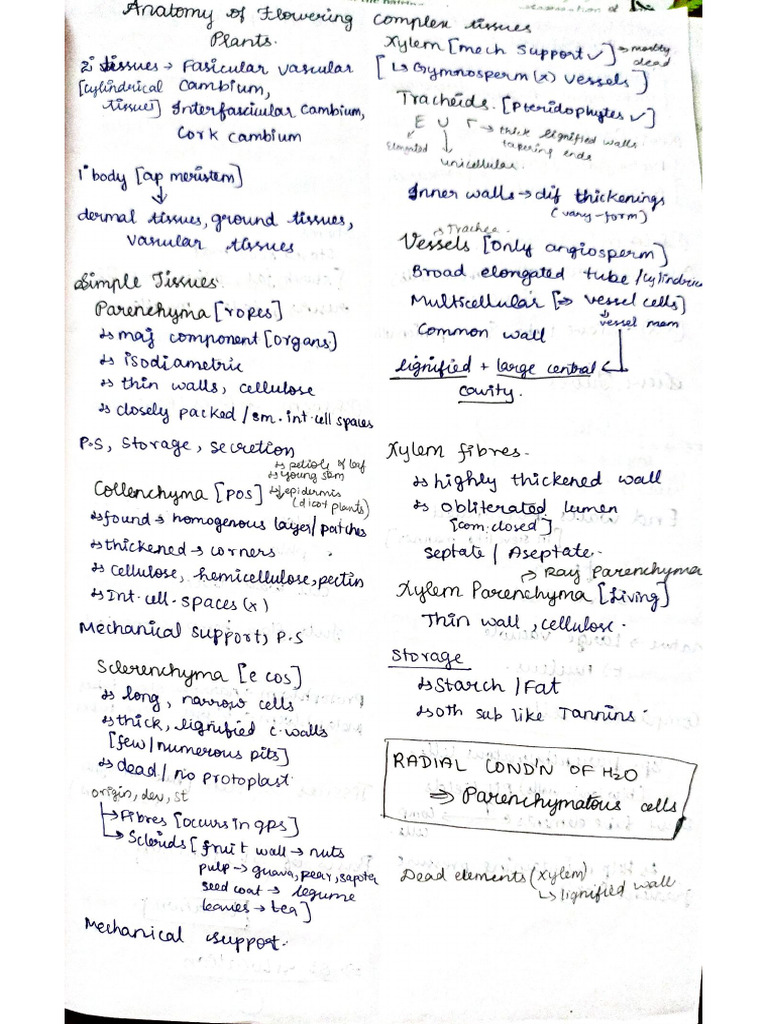 Anatomy of Flowering
Plants.
2° tissues → Fasicular vascular
[cylindrical Cambium,
tissue] Interfascicular Cambium,
Cork cambium
1° body [ap meristem]
↓
dermal tissues, ground tissues,
vascular tissues
Simple Tissues
Parenchyma [ropes]
↳ maj component [organs]
↳ isodiametric
↳ thin walls, cellulose
↳ closely packed / sm. int. cell spaces
P.S, Storage, Secretion
↳ petiole of leaf
↳ young stem
Collenchyma [pos] ↳ epidermis
(dicot plants)
↳ found → homogenous layer / patches
↳ thickened → corners
↳ cellulose, hemicellulose, pectin
↳ Int. cell. spaces (x)
Mechanical support, P.S
Sclerenchyma [e cos]
↳ long, narrow cells
↳ thick, lignified c. walls
[few / numerous pits]
↳ dead / no protoplast
origin, dev, st
↳ Fibres [occurs in gps]
↳ Sclerids [fruit wall → nuts
pulp → guava, pear, sapota
seed coat → legume
leaves → tea]
Mechanical support.
complex tissues
Xylem [mech support ✓] → mostly
dead
[↳ Gymnosperm (x) vessels]
Tracheids. [Pteridophytes ✓]
E U T → thick lignified walls
tapering ends
Elongated
unicellular.
Inner walls → dif thickenings
(vary-form)
↳ Trachea
Vessels [only angiosperm]
Broad elongated tube / cylindrica
Multicellular [→ vessel cells]
vessel mem
Common wall
lignified + large central
cavity.
Xylem fibres.
↳ highly thickened wall
↳ obliterated lumen
[com. closed]
septate / Aseptate.
→ Ray Parenchyma
Xylem Parenchyma [Living]
Thin wall, cellulose.
Storage
↳ Starch / Fat
↳ oth sub like Tannins.
RADIAL COND'N OF H2O
⇒ Parenchymatous cells
Dead elements (Xylem)
↳ lignified wall